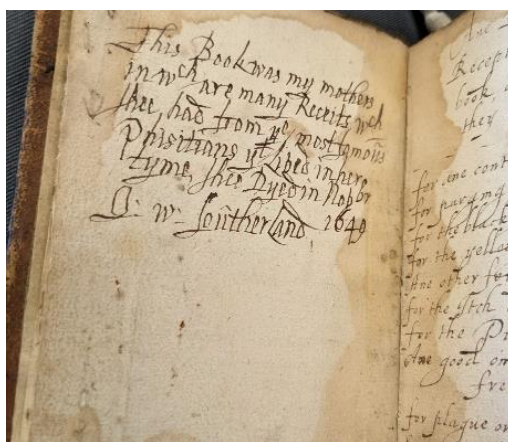 This Book was my mothers
in wch are many Receits wch
shee had from ye most famous
Phisitians yt lived in here
tyme, shee Dyed in Nobbr
D: w: Southerland 1649
And
Recept
book,
they
for ane cont
for pur
for the black
for the yello
Ane other for
for the Itch
for the P
Ane good
fre
for plague or